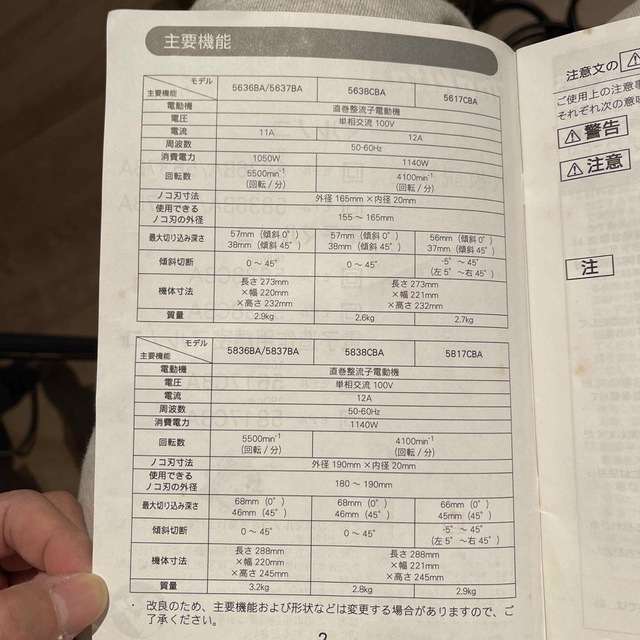 主要機能
モデル
主要機能 5636BA/5637BA 5638CBA 5617CBA
電動機 直巻整流子電動機
電圧 単相交流 100V
電流 11A 12A
周波数 50-60Hz
消費電力 1050W 1140W
回転数 5500min⁻¹ (回転/分) 4100min⁻¹ (回転/分)
ノコ刃寸法 外径 165mm ×内径 20mm
使用できる
ノコ刃の外径 155 ～ 165mm
最大切り込み深さ 57mm (傾斜 0°) 57mm (傾斜 0°) 56mm (傾斜 0°)
38mm (傾斜 45°) 38mm (傾斜 45°) 37mm (傾斜 45°)
傾斜切断 0 ～ 45° 0 ～ 45° -5° ～ 45°
(左 5° ～右 45°)
機体寸法 長さ 273mm 長さ 273mm
×幅 220mm ×幅 221mm
×高さ 232mm ×高さ 232mm
質量 2.9kg 2.6kg 2.7kg
モデル
主要機能 5836BA/5837BA 5838CBA 5817CBA
電動機 直巻整流子電動機
電圧 単相交流 100V
電流 12A
周波数 50-60Hz
消費電力 1140W
回転数 5500min⁻¹ (回転/分) 4100min⁻¹ (回転/分)
ノコ刃寸法 外径 190mm ×内径 20mm
使用できる
ノコ刃の外径 180 ～ 190mm
最大切り込み深さ 68mm (0°) 68mm (0°) 66mm (0°)
46mm (45°) 46mm (45°) 45mm (45°)
傾斜切断 0 ～ 45° 0 ～ 45° -5° ～ 45°
(左 5° ～右 45°)
機体寸法 長さ 288mm 長さ 288mm
×幅 220mm ×幅 221mm
×高さ 245mm ×高さ 245mm
質量 3.2kg 2.8kg 2.9kg
・ 改良のため、主要機能および形状などは変更する場合がありますので、ご
了承ください。
2
注意文の
ご使用上の注意事
それぞれ次の意
警告
注意
注